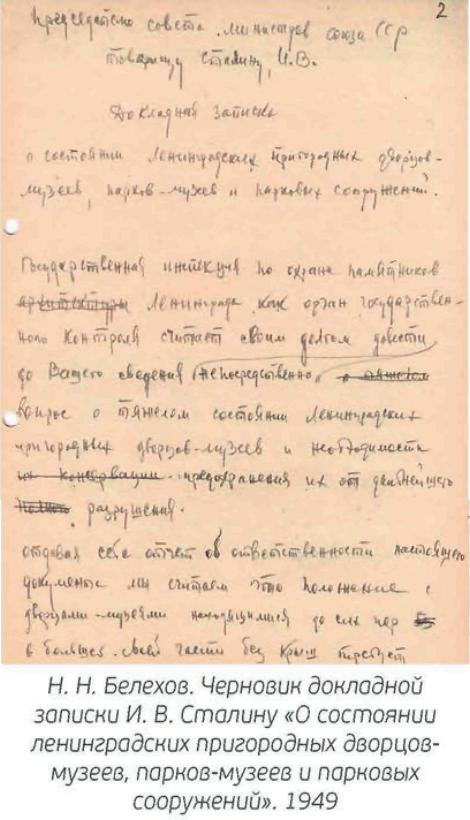 2
Председателю совета министров союза ССР
товарищу Сталину, И.В.
Докладная записка
о состоянии Ленинградских пригородных дворцов-
музеев, парков-музеев и парковых сооружений.
Государственная инспекция по охране памятников
архитектуры Ленинграда как орган государствен-
ного контроля считает своим долгом довести
до Вашего сведения (непосредственно) о тяжелом
вопрос о тяжелом состоянии Ленинградских
пригородных дворцов-музеев и необходимости
их консервации предохранения их от дальнейшего
полного разрушения.
отдавая себе отчет об ответственности настоящего
документа мы считаем что положение с
дворцами-музеями находящимися до сих пор
в большей своей части без крыш требует
Н. Н. Белехов. Черновик докладной
записки И. В. Сталину «О состоянии
ленинградских пригородных дворцов-
музеев, парков-музеев и парковых
сооружений». 1949